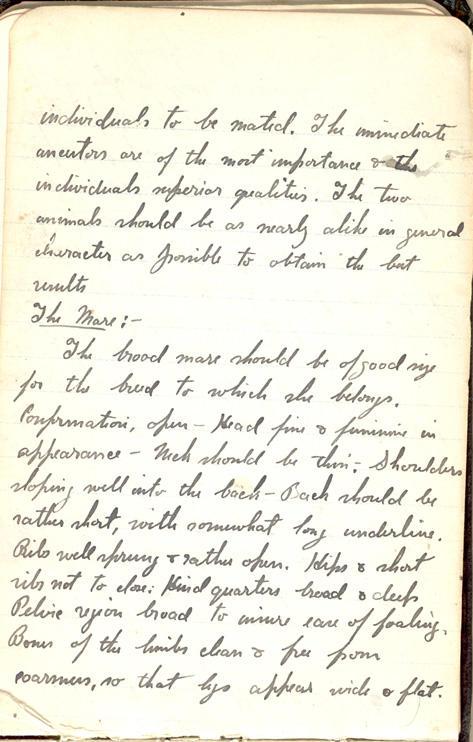 individuals to be mated. The immediate
ancestors are of the most importance & the
individuals superior qualities. The two
animals should be as nearly alike in general
character as possible to obtain the best
results
The Mare:-
The brood mare should be of good size
for the breed to which she belongs.
Conformation, open - Head fine & feminine in
appearance - Neck should be thin; Shoulders
sloping well into the back - Back should be
rather short, with somewhat long underline.
Ribs well sprung & rather open. Hips & short
ribs not to close; Hind quarters broad & deep
Pelvic region broad to insure ease of foaling.
Bones of the limbs clean & free from
coarness, so that legs appear wide & flat.